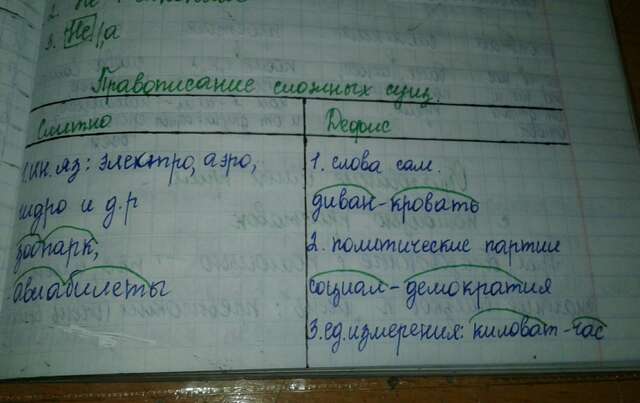 3. Не, а
Правописание сложных сущ.
Слитно
1. ин. яз: электро, аэро,
гидро и д.р
зоопарк,
авиабилеты
Дефис
1. слова сам.
диван-кровать
2. политические партии
социал-демократия
3. ед. измерения: киловат-час